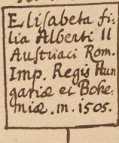 Elisabeta fi-
lia Alberti II
Austriaci Rom.
Imp. Regis Hun
gariæ et Bohe-
miæ. m. 1505.